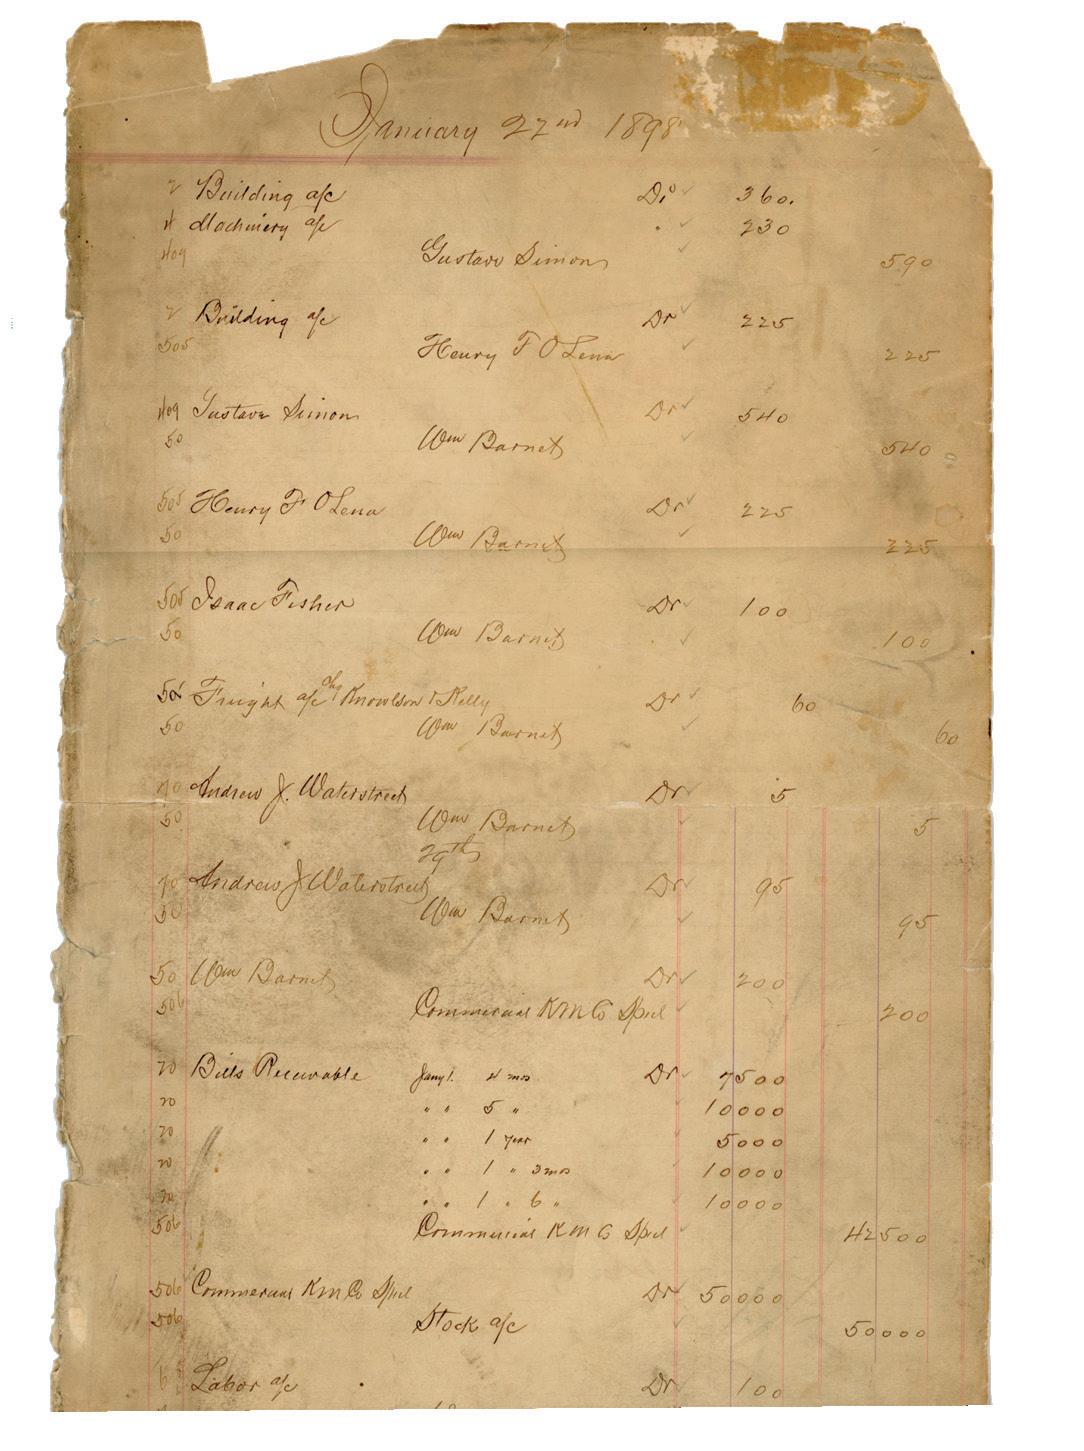 January 22nd 1898
2 Building a/c Dr 360.
4 Machinery a/c " 230
409 Gustave Simon 590
2 Building a/c Dr 225
505 Henry F O Lena 225
409 Gustave Simon Dr 540
50 Wm Barnet 540
505 Henry F O Lena Dr 225
50 Wm Barnet 225
505 Isaac Fisher Dr 100
50 Wm Barnet 100
Freight a/c Knowlson & Kelly Dr 60
50 Wm Barnet 60
70 Andrew J. Waterstreet Dr 5
50 Wm Barnet 5
29th
70 Andrew J Waterstreet Dr 95
50 Wm Barnet 95
50 Wm Barnet Dr 200
506 Commercial K M Co Spcl 200
20 Bills Receivable Jany 1. 4 mos Dr 7500
20 " " 5 " 10000
20 " " 1 year 5000
20 " " 1 " 3 mos 10000
20 " " 1 " 6 " 10000
506 Commercial K M Co Spcl 42500
506 Commercial K M Co Spcl Dr 50000
506 Stock a/c 50000
Labor a/c Dr 100